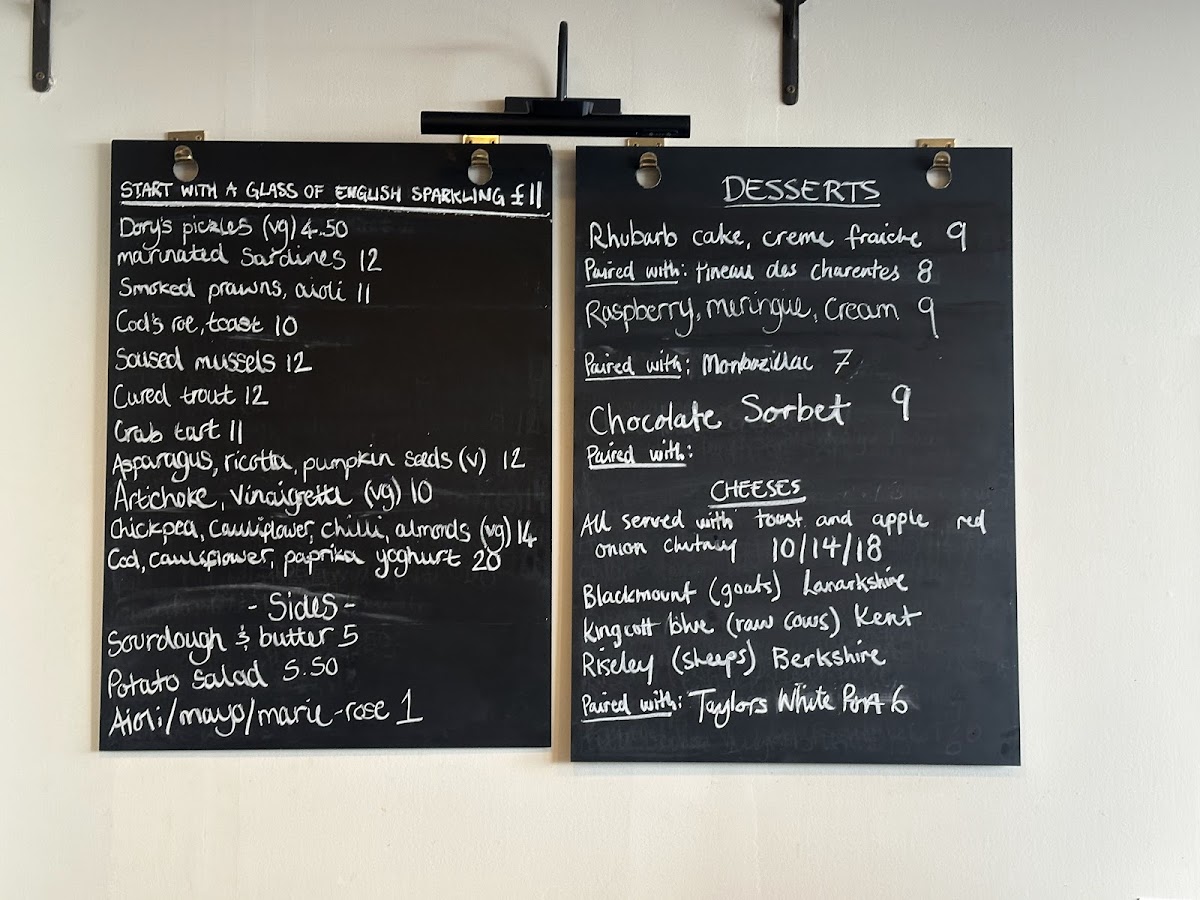 START WITH A GLASS OF ENGLISH SPARKLING £11
Dory's pickles (vg) 4.50
marinated Sardines 12
Smoked prawns, aioli 11
Cod's roe, toast 10
Soused mussels 12
Cured trout 12
Crab tart 11
Asparagus, ricotta, pumpkin seeds (v) 12
Artichoke, Vinaigrette (vg) 10
Chickpea, Cauliflower, chilli, almonds (vg) 14
Cod, cauliflower, paprika yoghurt 20
- Sides -
Sourdough & butter 5
Potato Salad 5.50
Aioli/mayo/marie-rose 1
DESSERTS
Rhubarb cake, creme fraiche 9
Paired with: Pineau des Charentes 8
Raspberry, meringue, Cream 9
Paired with: Monbazillac 7
Chocolate Sorbet 9
Paired with:
CHEESES
All served with toast and apple red
onion chutney 10/14/18
Blackmount (goats) Lanarkshire
Kingcott blue (raw cows) Kent
Riseley (sheeps) Berkshire
Paired with: Taylors White Port 6